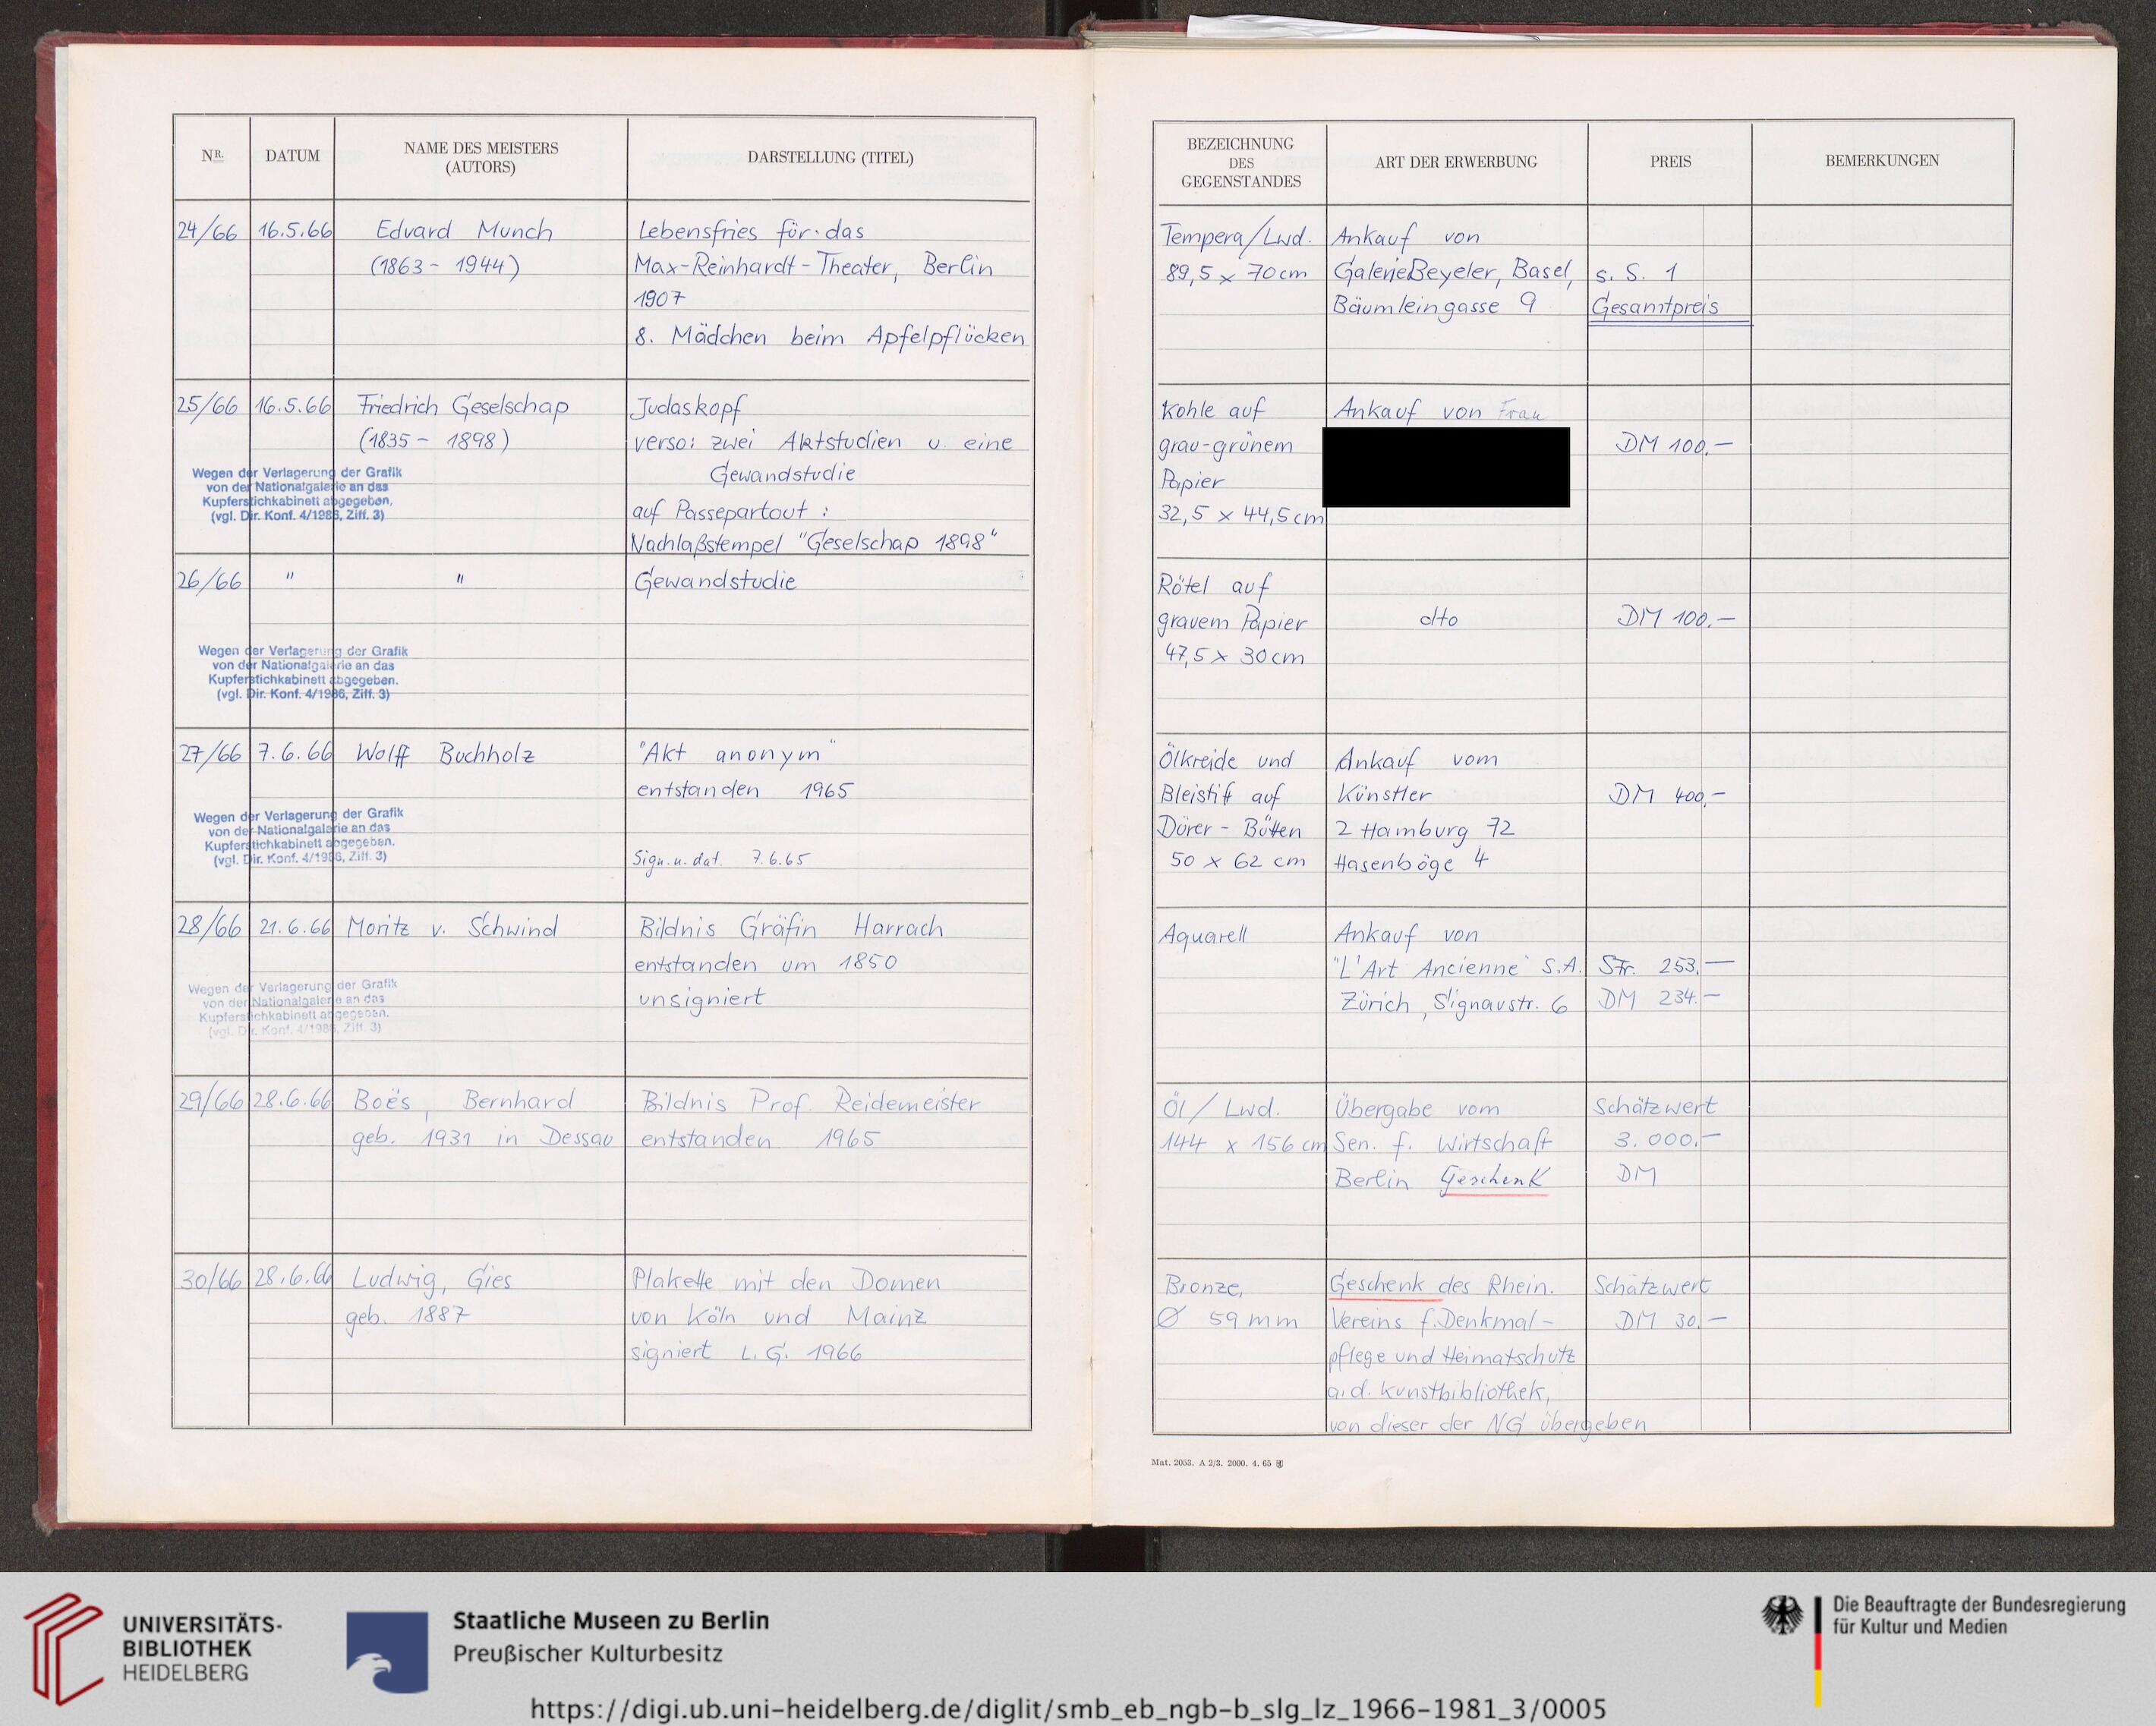 NR.
DATUM
NAME DES MEISTERS
(AUTORS)
DARSTELLUNG (TITEL)
24/66
16.5.66
Edvard Munch
(1863 - 1944)
Lebensfries für das
Max-Reinhardt-Theater, Berlin
1907
8. Mädchen beim Apfelpflücken
25/66
16.5.66
Friedrich Geselschap
(1835 - 1898)
Wegen der Verlagerung der Grafik
von der Nationalgalerie an das
Kupferstichkabinett abgegeben.
(vgl. Dir. Konf. 4/1986, Ziff. 3)
Judaskopf
verso: zwei Aktstudien u. eine
Gewandstudie
auf Passepartout :
Nachlaßstempel "Geselschap 1898"
26/66
"
"
Wegen der Verlagerung der Grafik
von der Nationalgalerie an das
Kupferstichkabinett abgegeben.
(vgl. Dir. Konf. 4/1986, Ziff. 3)
Gewandstudie
27/66
7.6.66
Wolff Buchholz
Wegen der Verlagerung der Grafik
von der Nationalgalerie an das
Kupferstichkabinett abgegeben.
(vgl. Dir. Konf. 4/1986, Ziff. 3)
"Akt anonym"
entstanden 1965
Sign. u. dat. 7.6.65
28/66
21.6.66
Moritz v. Schwind
Wegen der Verlagerung der Grafik
von der Nationalgalerie an das
Kupferstichkabinett abgegeben.
(vgl. Dir. Konf. 4/1986, Ziff. 3)
Bildnis Gräfin Harrach
entstanden um 1850
unsigniert
29/66
28.6.66
Boës, Bernhard
geb. 1931 in Dessau
Bildnis Prof. Reidemeister
entstanden 1965
30/66
28.6.66
Ludwig, Gies
geb. 1887
Plakette mit den Domen
von Köln und Mainz
signiert L.G. 1966
BEZEICHNUNG
DES
GEGENSTANDES
ART DER ERWERBUNG
PREIS
BEMERKUNGEN
Tempera/Lwd.
89,5 x 70 cm
Ankauf von
Galerie Beyeler, Basel,
Bäumleingasse 9
s. S. 1
Gesamtpreis
Kohle auf
grau-grünem
Papier
32,5 x 44,5 cm
Ankauf von Frau
DM 100,—
Rötel auf
grauem Papier
47,5 x 30 cm
dto
DM 100.—
Ölkreide und
Bleistift auf
Dürer - Bütten
50 x 62 cm
Ankauf vom
Künstler
2 Hamburg 72
Hasenböge 4
DM 400,—
Aquarell
Ankauf von
"L'Art Ancienne" S.A.
Zürich, Signaustr. 6
SFr. 253,—
DM 234.—
Öl / Lwd.
144 x 156 cm
Übergabe vom
Sen. f. Wirtschaft
Berlin Geschenk
Schätzwert
3.000,—
DM
Bronze,
Ø 59 mm
Geschenk des Rhein.
Vereins f. Denkmal-
pflege und Heimatschutz
a.d. Kunstbibliothek,
von dieser der NG übergeben
Schätzwert
DM 30,—
Mat. 2053. A 2/3. 2000. 4. 65
UNIVERSITÄTS-
BIBLIOTHEK
HEIDELBERG
Staatliche Museen zu Berlin
Preußischer Kulturbesitz
Die Beauftragte der Bundesregierung
für Kultur und Medien
https://digi.ub.uni-heidelberg.de/diglit/smb_eb_ngb-b_slg_lz_1966-1981_3/0005